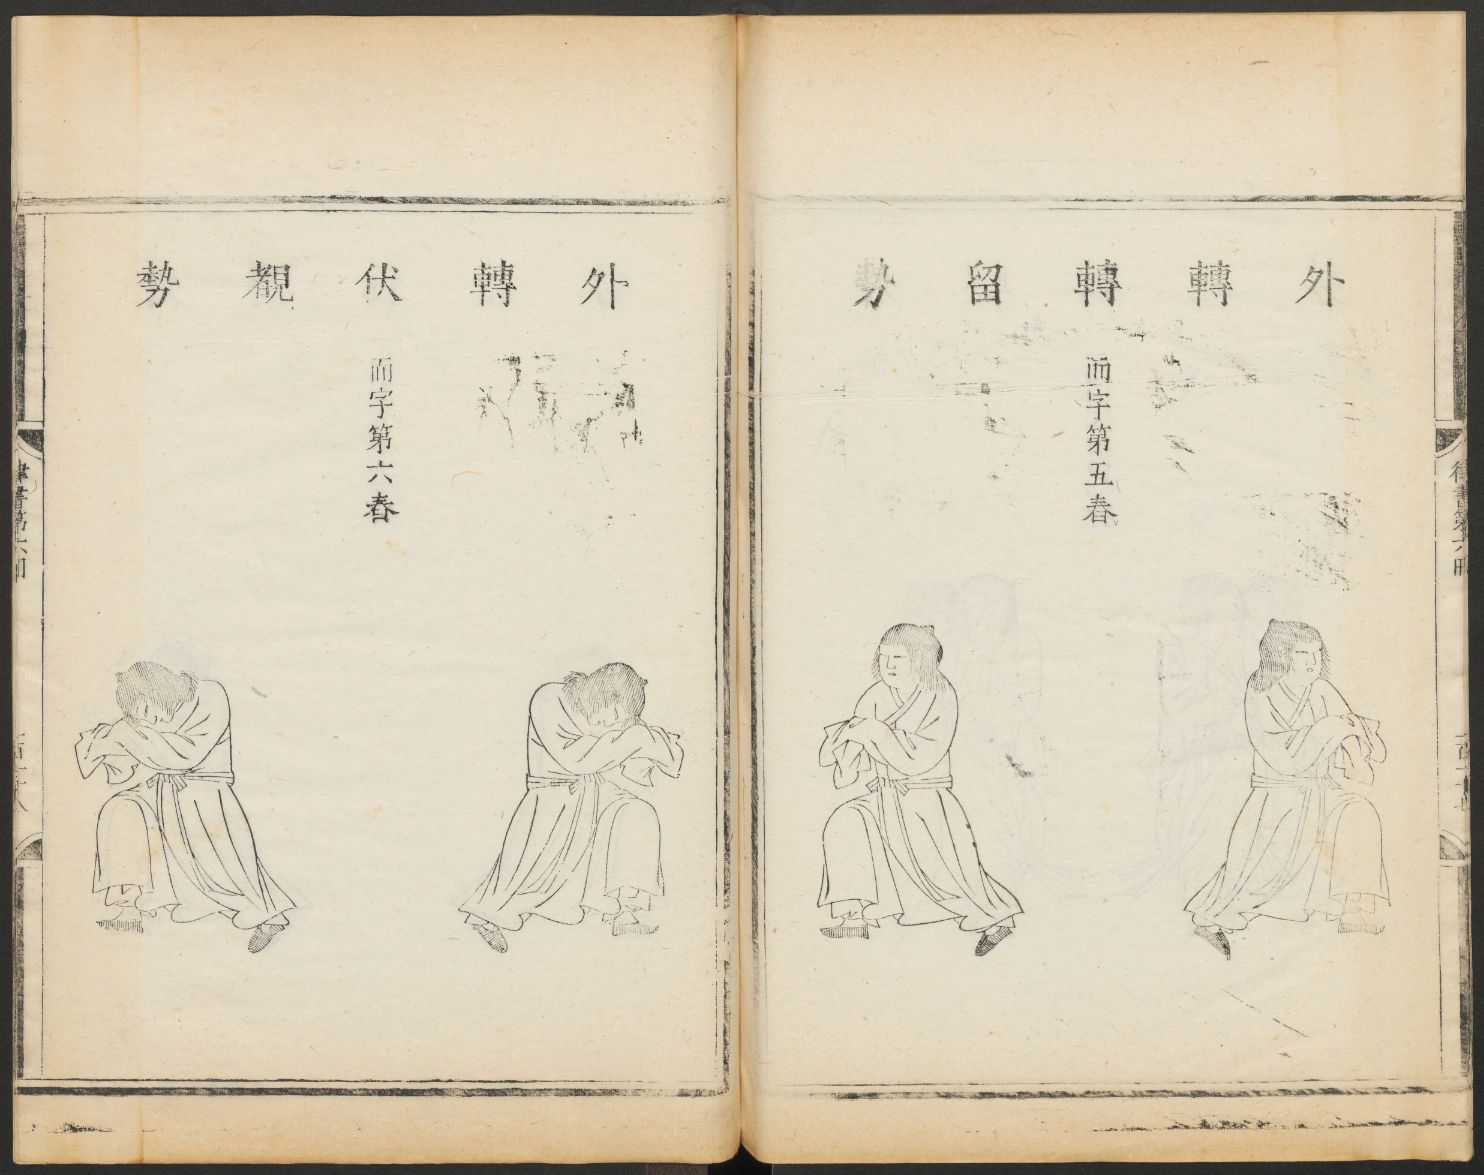 律書第六冊
外轉轉留勢
而字第五舂
外轉伏覩勢
而字第六舂
律書第六冊